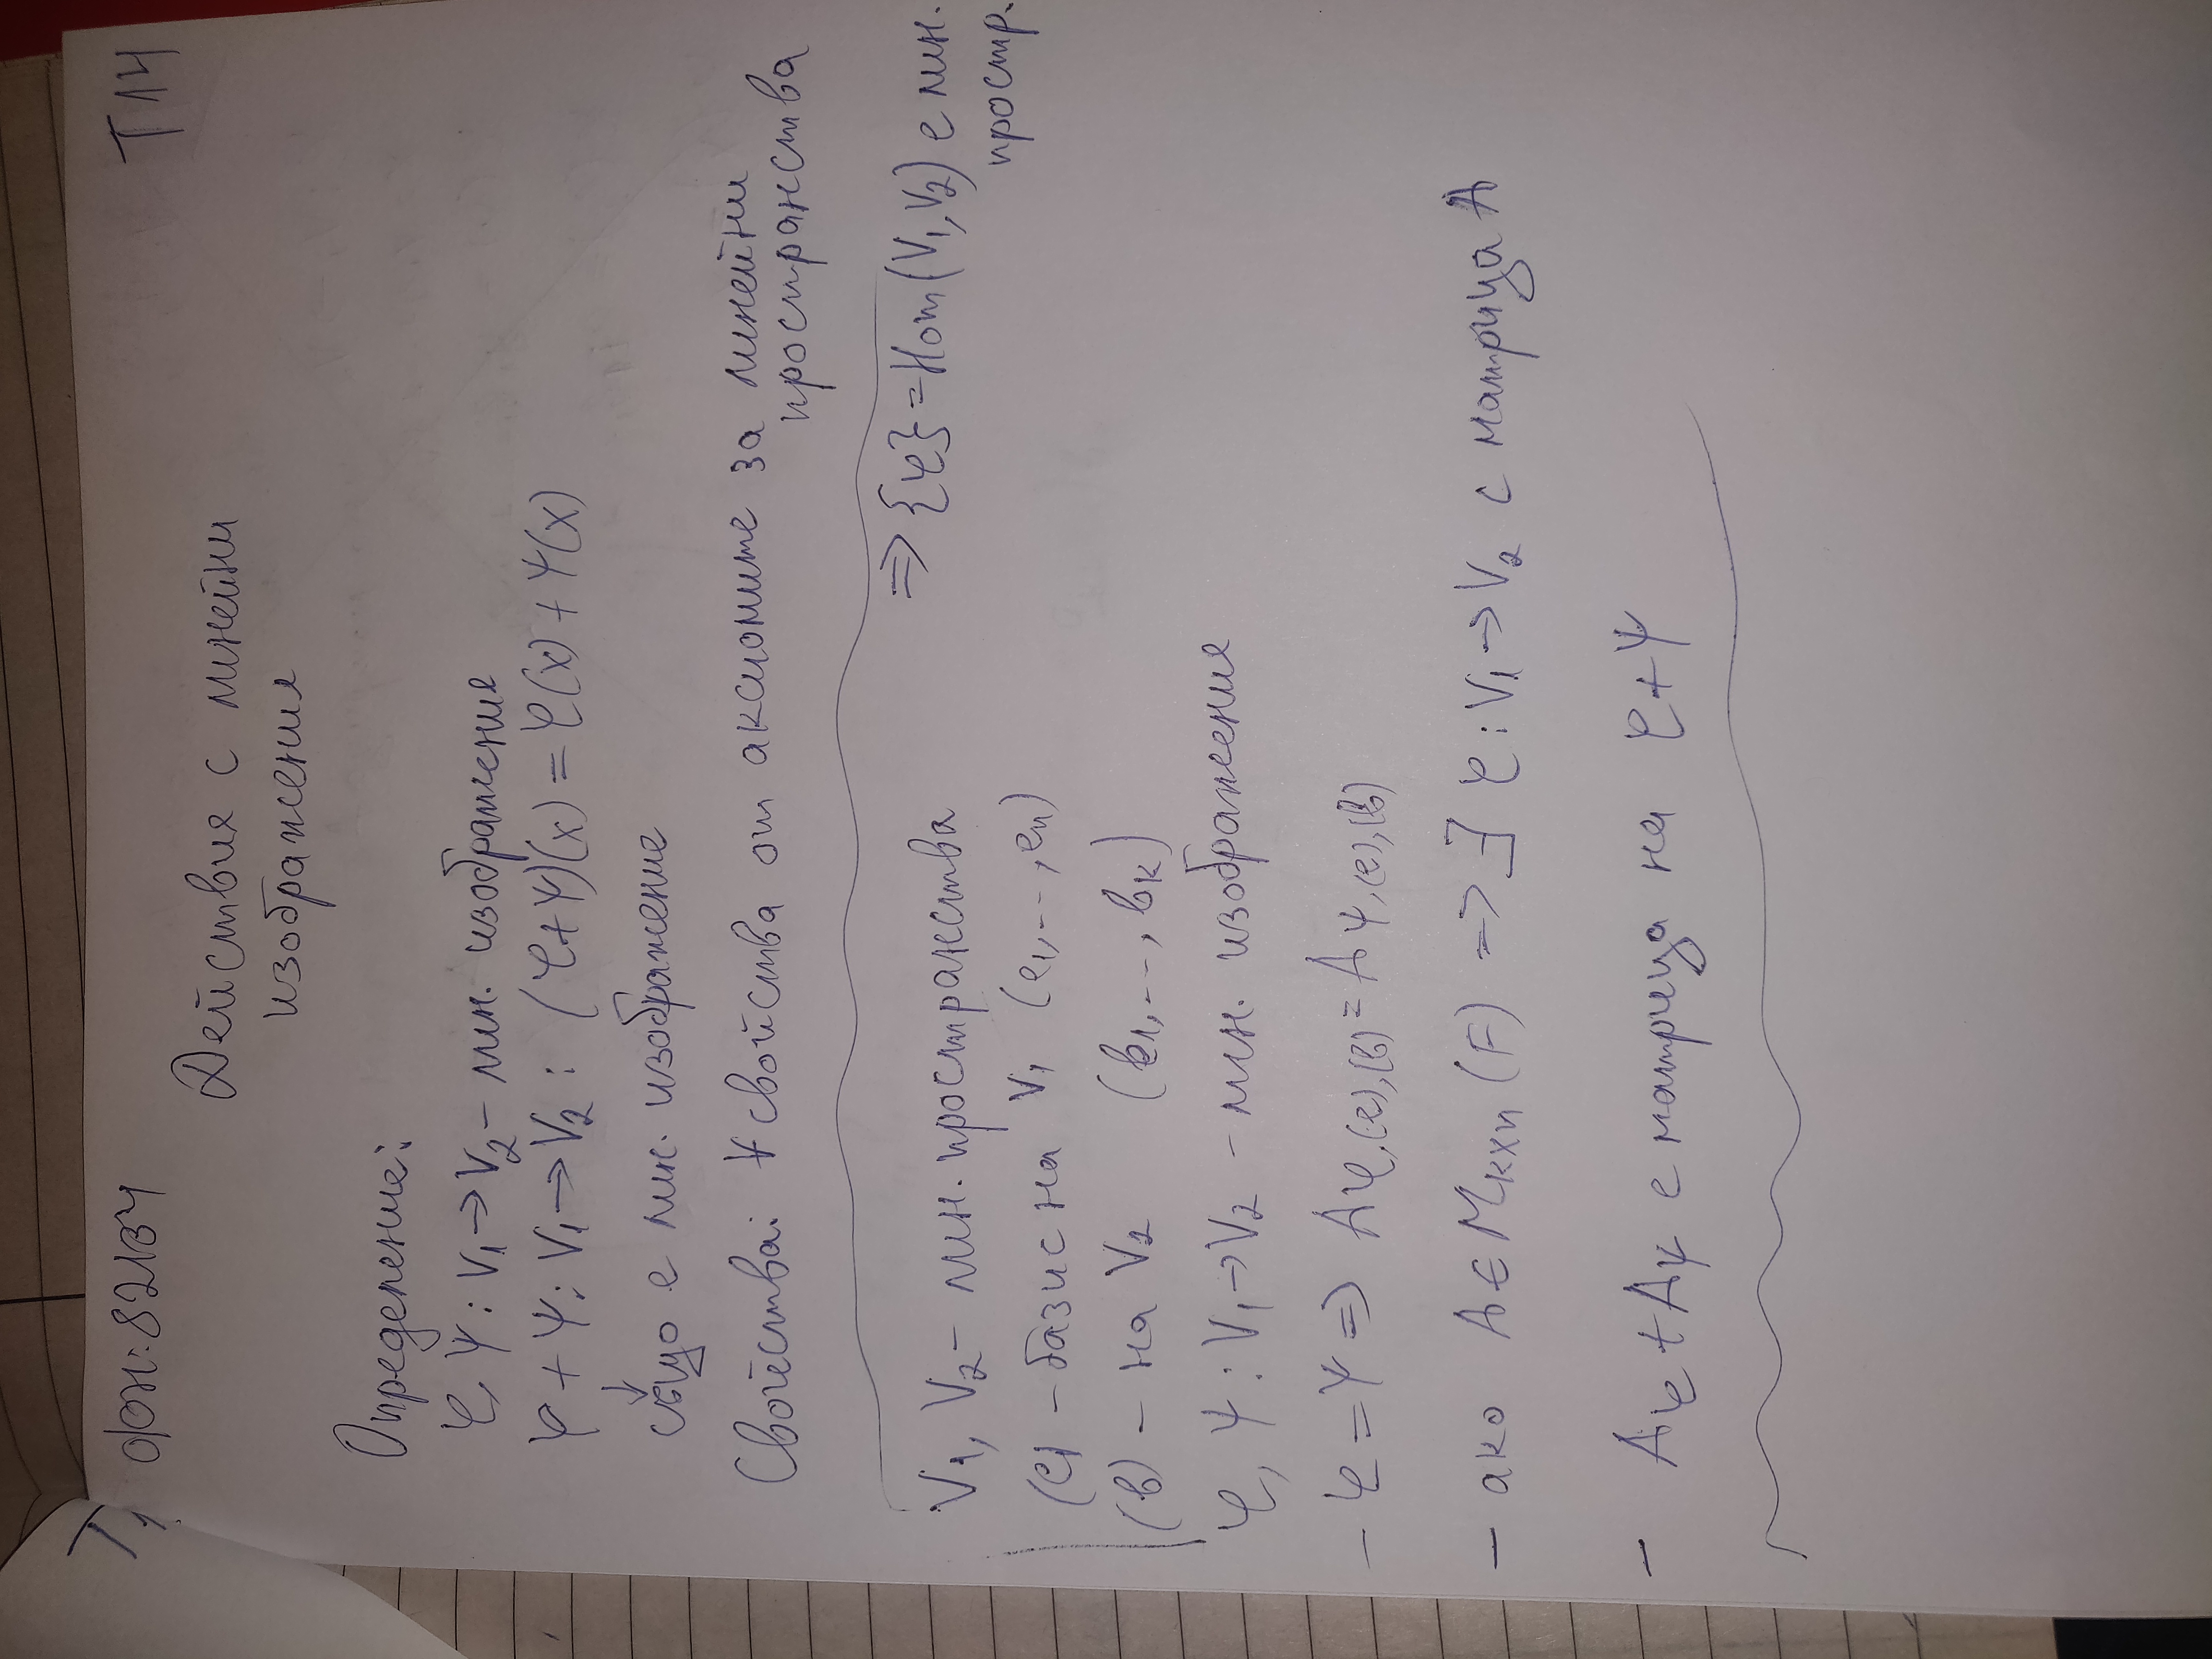 фн: 82134
Т 14
Действия с линейни
изображения
Определение:
φ, ψ : V₁ → V₂ – лин. изображения
φ + ψ : V₁ → V₂ : (φ+ψ)(x) = φ(x) + ψ(x)
↓
също е лин. изображение
Свойства: ∀ свойства от аксиомите за линейни
пространства
⇒ {φ} = Hom(V₁, V₂) е лин.
простр.
V₁, V₂ – лин. пространства
(e) – базис на V₁ (e₁, ..., eₙ)
(b) – на V₂ (b₁, ..., bₖ)
φ, ψ : V₁ → V₂ – лин. изображения
– φ = ψ ⇒ Aφ,(e),(b) = Aψ,(e),(b)
– ако A ∈ Mₖₓₙ (F) ⇒ ∃ φ : V₁ → V₂ с матрица A
– Aφ + Aψ е матрица на φ + ψ